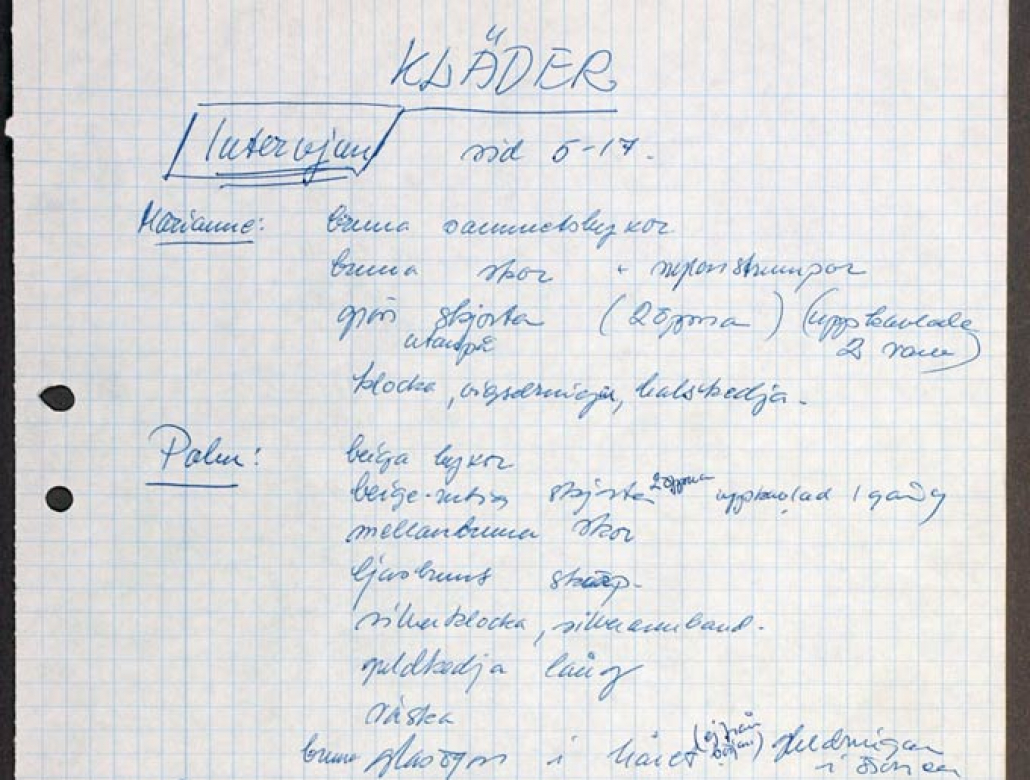 KLÄDER
Intervjun sid 5-17.
Marianne: bruna sammetsbyxor
bruna skor + nylonstrumpor
grön skjorta (2 öppna) (uppkavlade
utanpå 2 varv)
klocka, vigselringar, halskedja.
Palm: beiga byxor
beige-rutig skjorta 2 öppna uppkavlad 1 gång
mellanbruna skor
ljusbrunt skärp.
silverklocka, silverarmband.
guldkedja lång
väska
bruna glasögon i håret (ej från början) guldringar
i öronen